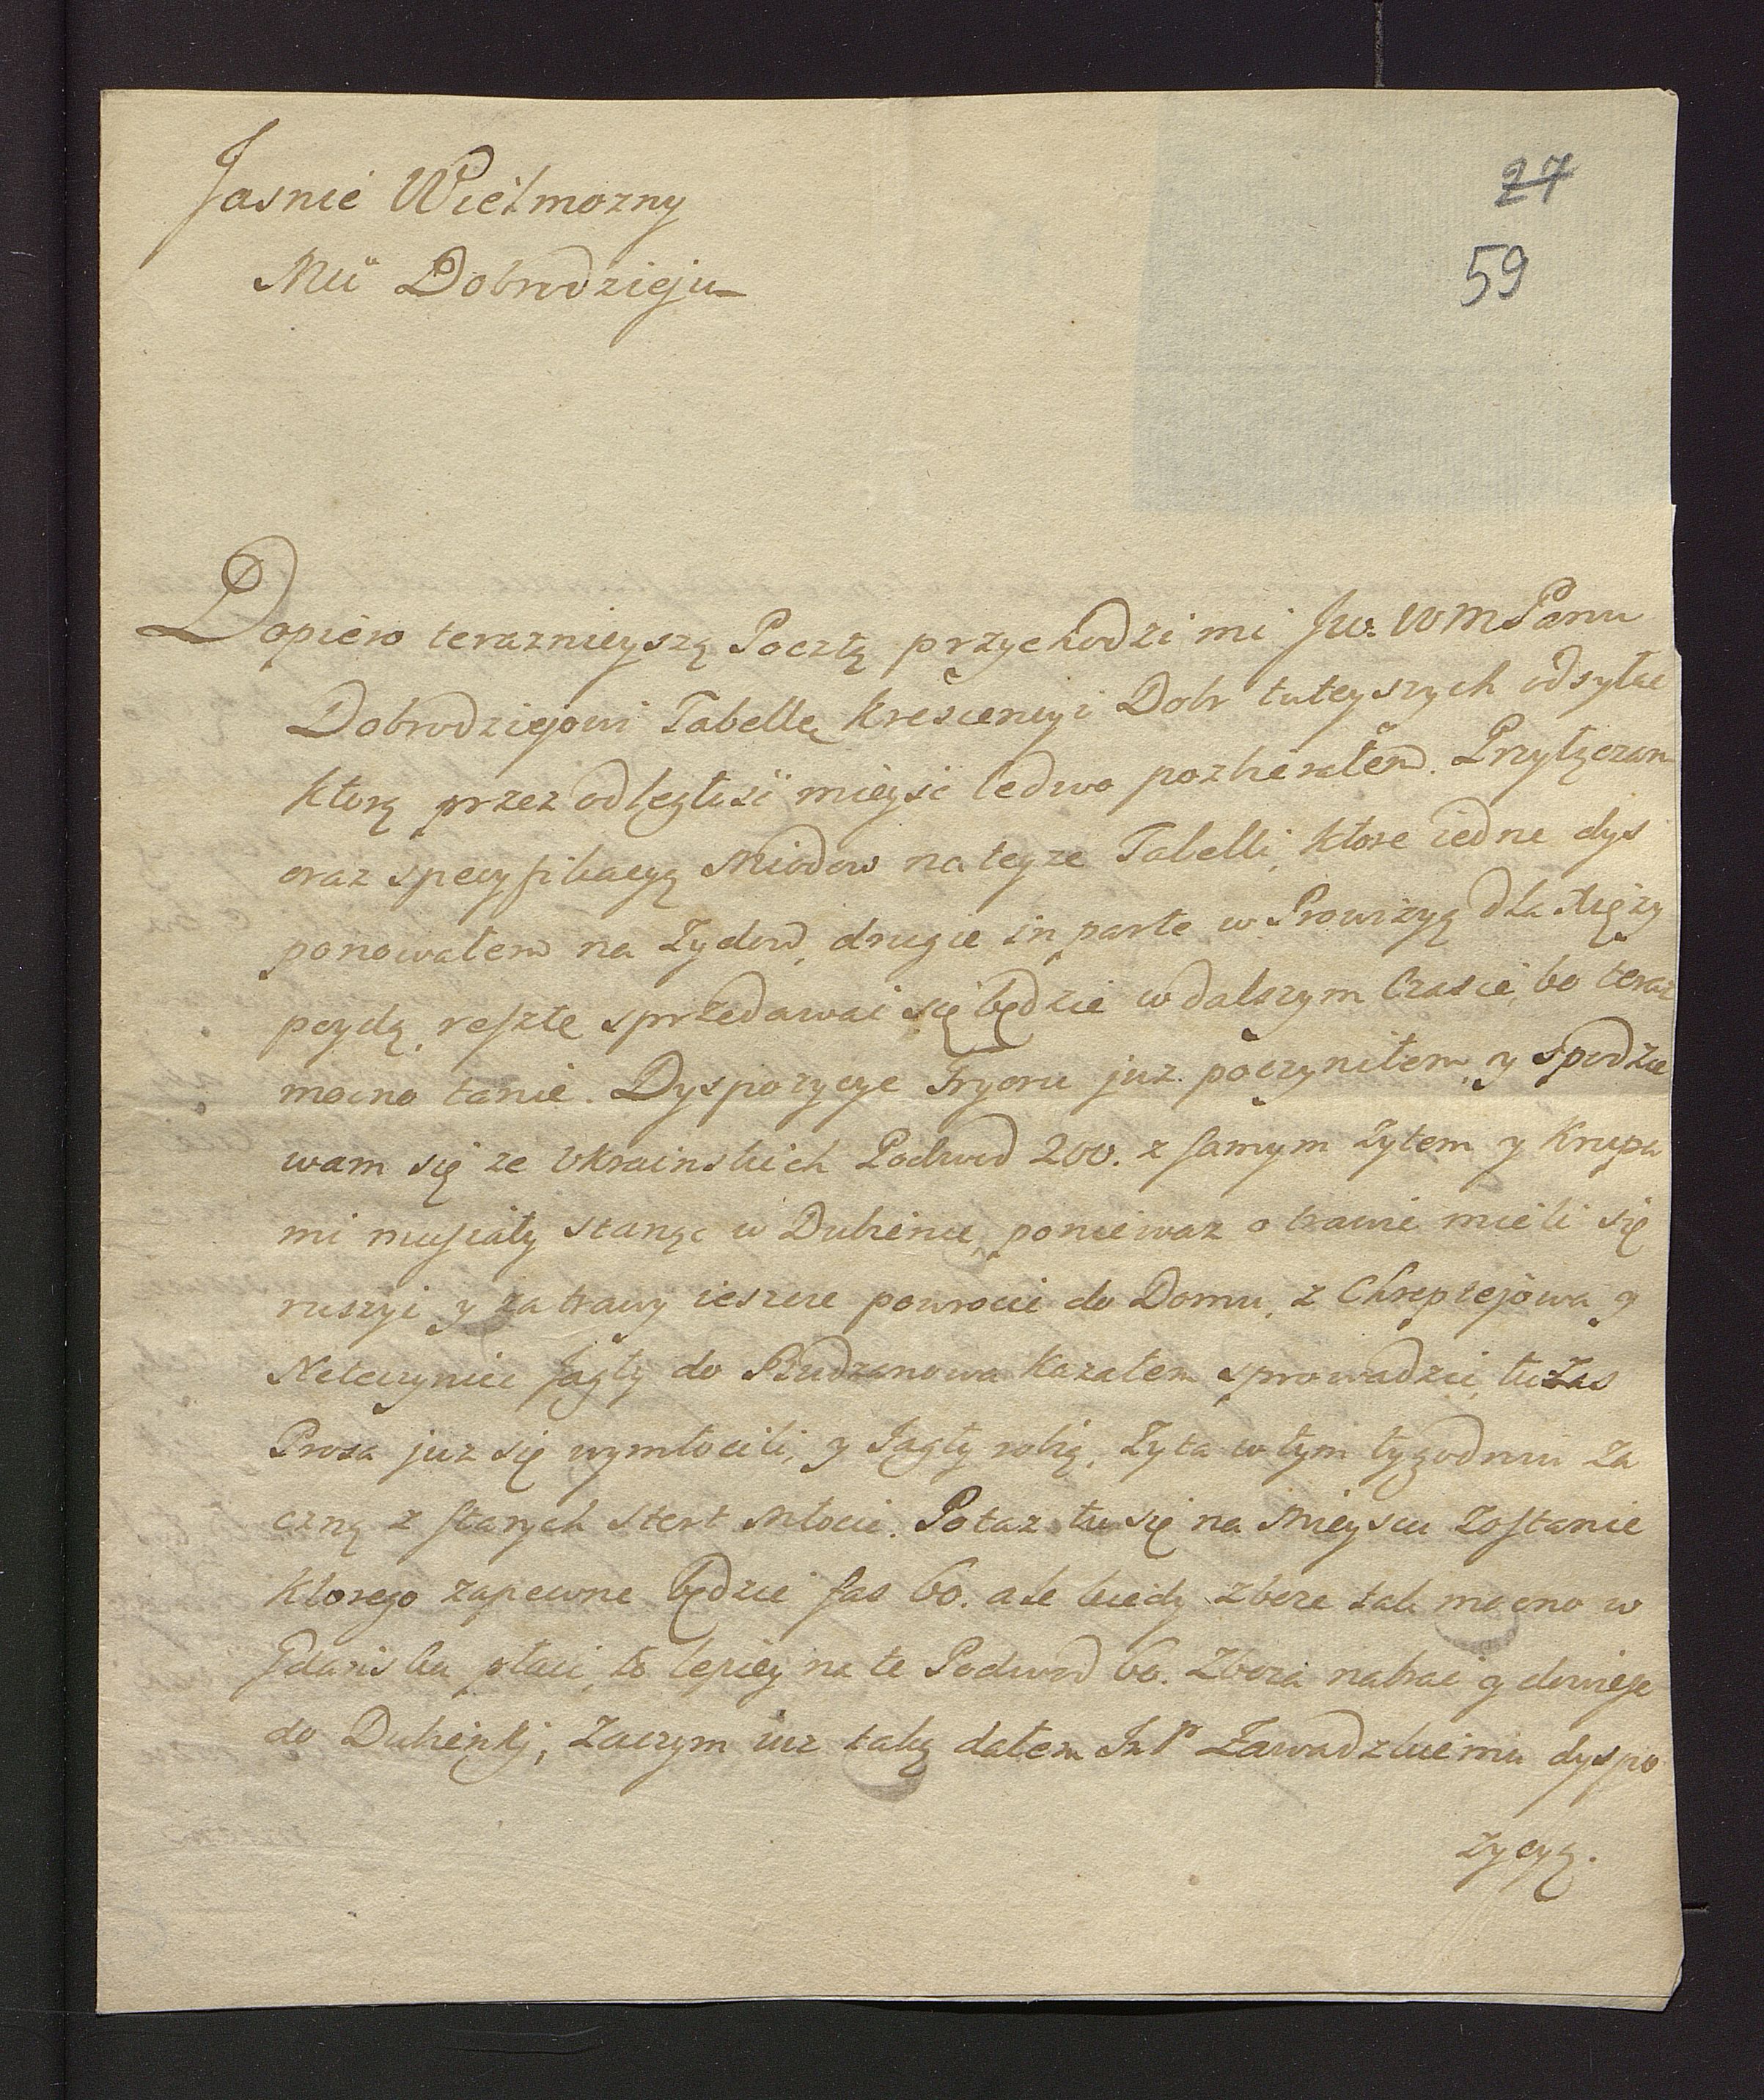 27
59
Jasnie Wielmozny
Mći Dobrodzieju
Dopiero teraznieyszą Pocztą przychodzi mi Jw. WMPanu
Dobrodziejowi Tabellę krescencyi Dobr tuteyszych odsyłac
ktorą przez odległość mieysc ledwo pozbierałem. Przyłączam
oraz specyfikacyą Miodow na teyze Tabelli, ktore iedne dys
ponowałem na Zydow, drugie in parte w Prowizyą dla Xięzy
poydą, resztę sprzedawac się będzie w dalszym Czasie, bo teraz
mocno tanie. Dyspozycye Fryoru juz poczyniłem, y spodzie
wam się ze Ukrainskich Podwod 200. z samym Zytem y Krupa
mi musiały stanąc w Dubience, poniewaz o trawie mieli się
ruszyc y za trawy ieszcze powrocic do Domu, z Chreptejowa y
Neteczyniec Jagły do Budzanowa kazałem sprowadzic, tu Zas
Prosa juz się wymłocili, y Jagły robią, Zyta w tym tygodniu Za
czną z starych stert Młocic. Potaz tu się na Mieyscu Zostanie
ktorego zapewne będzie fas 60. ale kiedy zboze tak mocno w
Gdansku płaci, to lepiey na te Podwod 60. Zboza nabrac y dowiesc
do Dubienki, Zaczym iuz taką dałem Zawadzkiemu dyspo
zycyą.